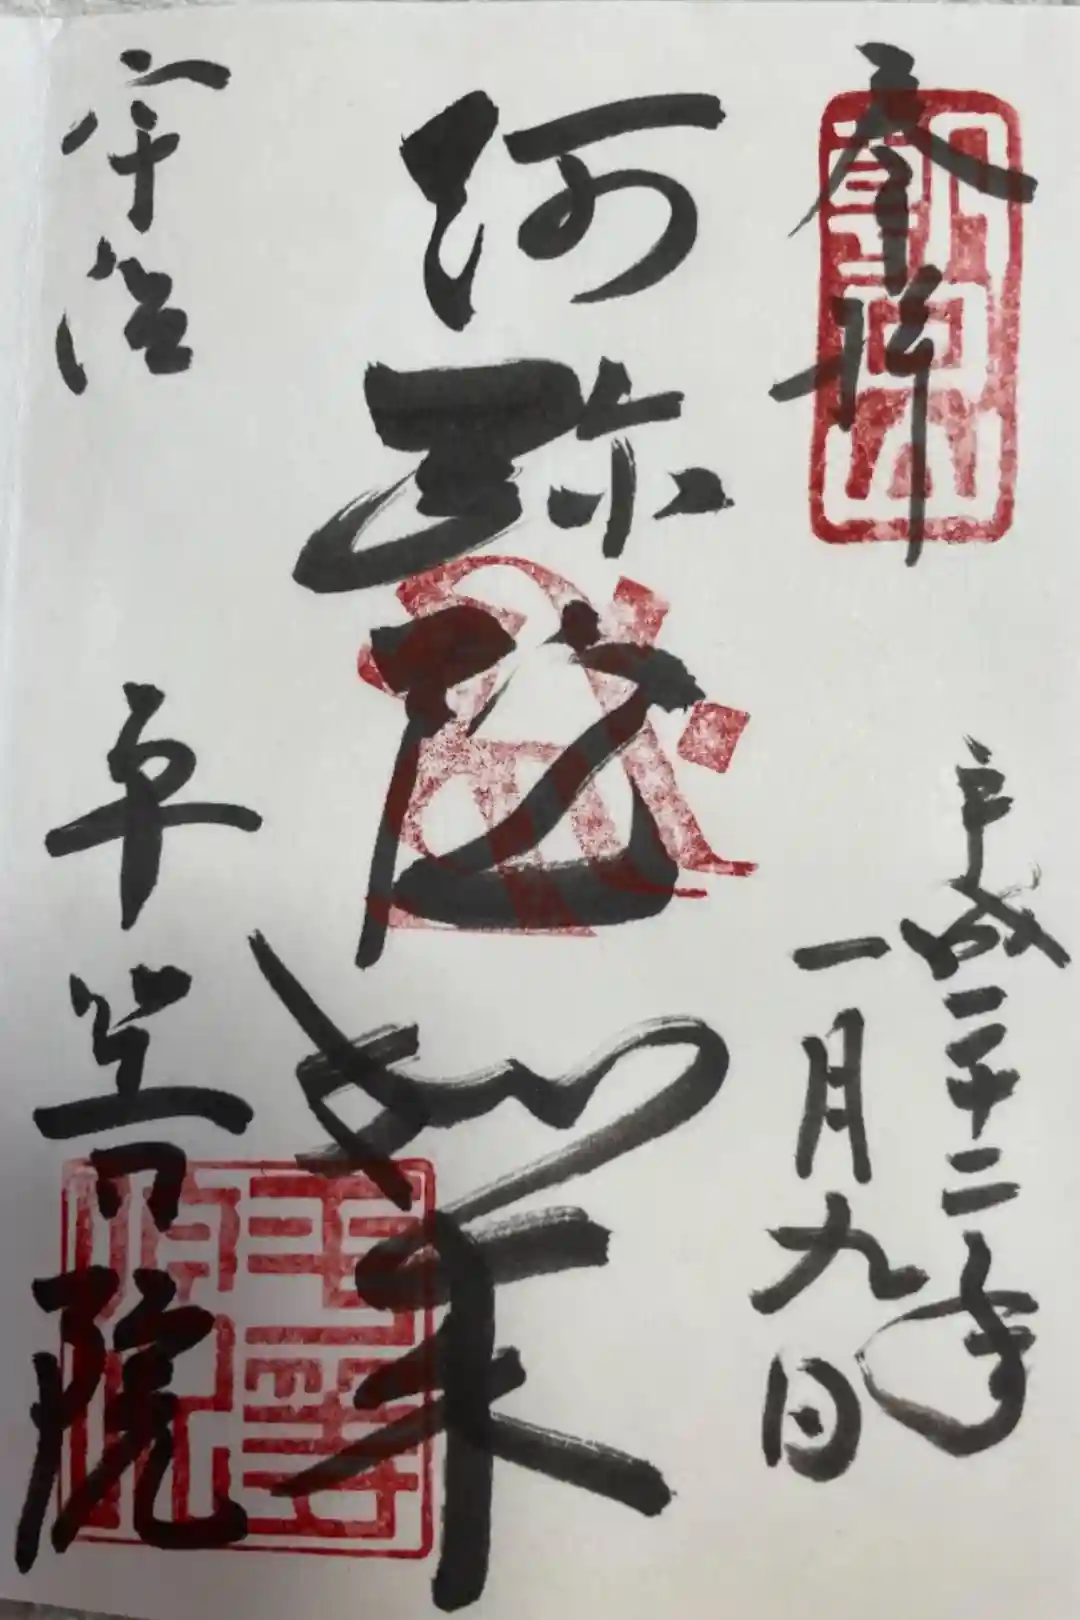 奉拝
朝日山
平成二十二年
一月九日
阿弥陀如来
宇治
平等院